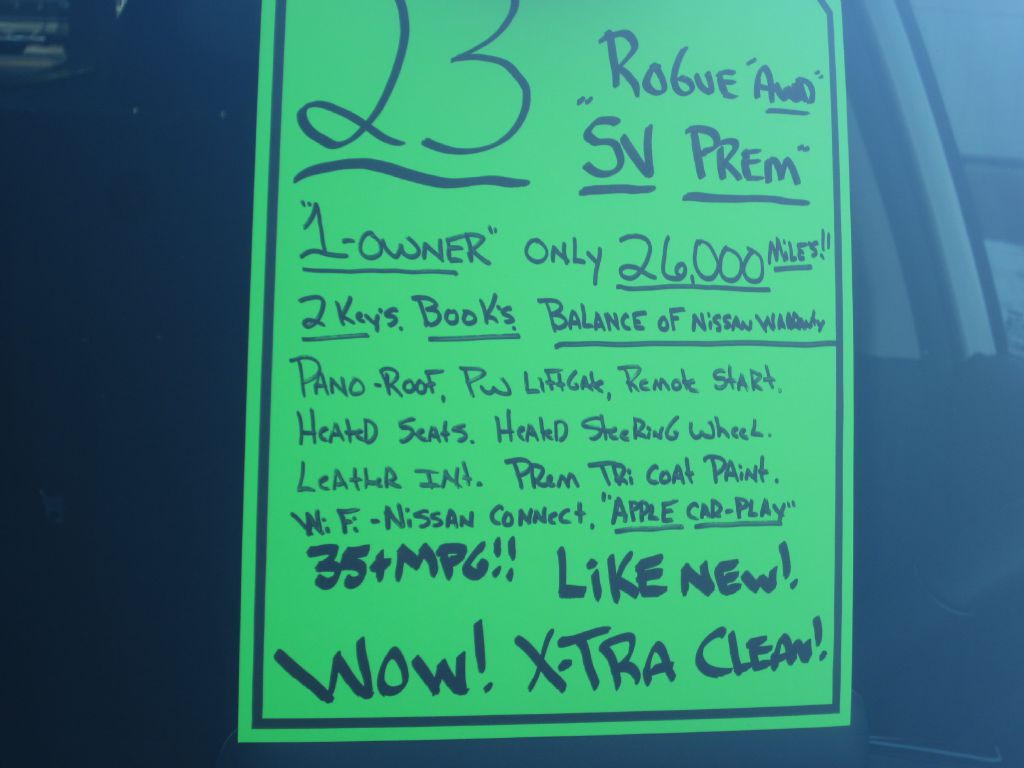 23 ROGUE "AWD"
"SV PREM"
"1-OWNER" ONLY 26,000 MILES!!
2 KEY'S. BOOK'S. BALANCE OF NISSAN WARRANTY
PANO-ROOF, PW LIFTGATE, REMOTE START.
HEATED SEATS. HEATED STEERING WHEEL.
LEATHER INT. PREM TRI COAT PAINT.
Wi.Fi.-NISSAN CONNECT. "APPLE CAR-PLAY"
35+MPG!! LIKE NEW!
WOW! X-TRA CLEAN!